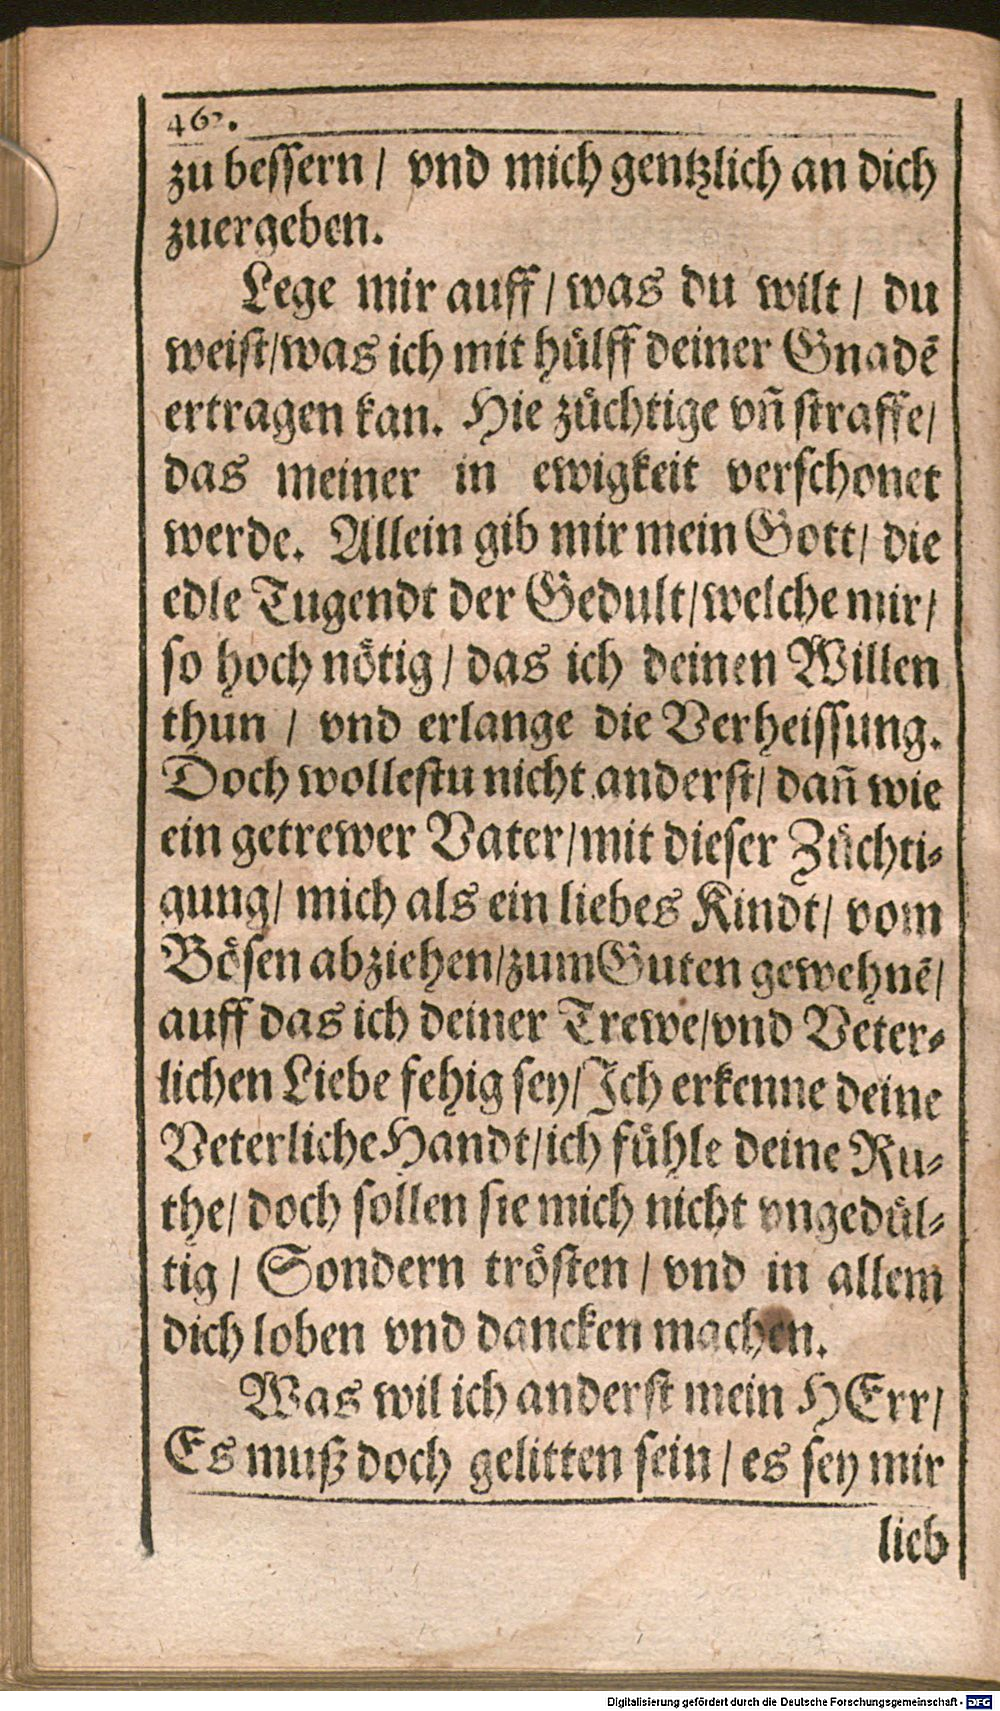 462.
zu bessern / vnd mich gentzlich an dich
zuergeben.
Lege mir auff / was du wilt / du
weist/was ich mit hülff deiner Gnadē
ertragen kan. Hie züchtige vñ straffe/
das meiner in ewigkeit verschonet
werde. Allein gib mir mein Gott/ die
edle Tugendt der Gedult/welche mir/
so hoch nötig / das ich deinen Willen
thun / vnd erlange die Verheissung.
Doch wollestu nicht anderst/ dañ wie
ein getrewer Vater/mit dieser Züchti-
gung/ mich als ein liebes Kindt/ vom
Bösen abziehen/zum Guten gewehnē/
auff das ich deiner Trewe/vnd Veter-
lichen Liebe fehig sey/Ich erkenne deine
Veterliche Handt/ich fühle deine Ru-
the/ doch sollen sie mich nicht vngedül-
tig / Sondern trösten / vnd in allem
dich loben vnd dancken machen.
Was wil ich anderst mein HErr/
Es muß doch gelitten sein / es sey mir
lieb
Digitalisierung gefördert durch die Deutsche Forschungsgemeinschaft - DFG